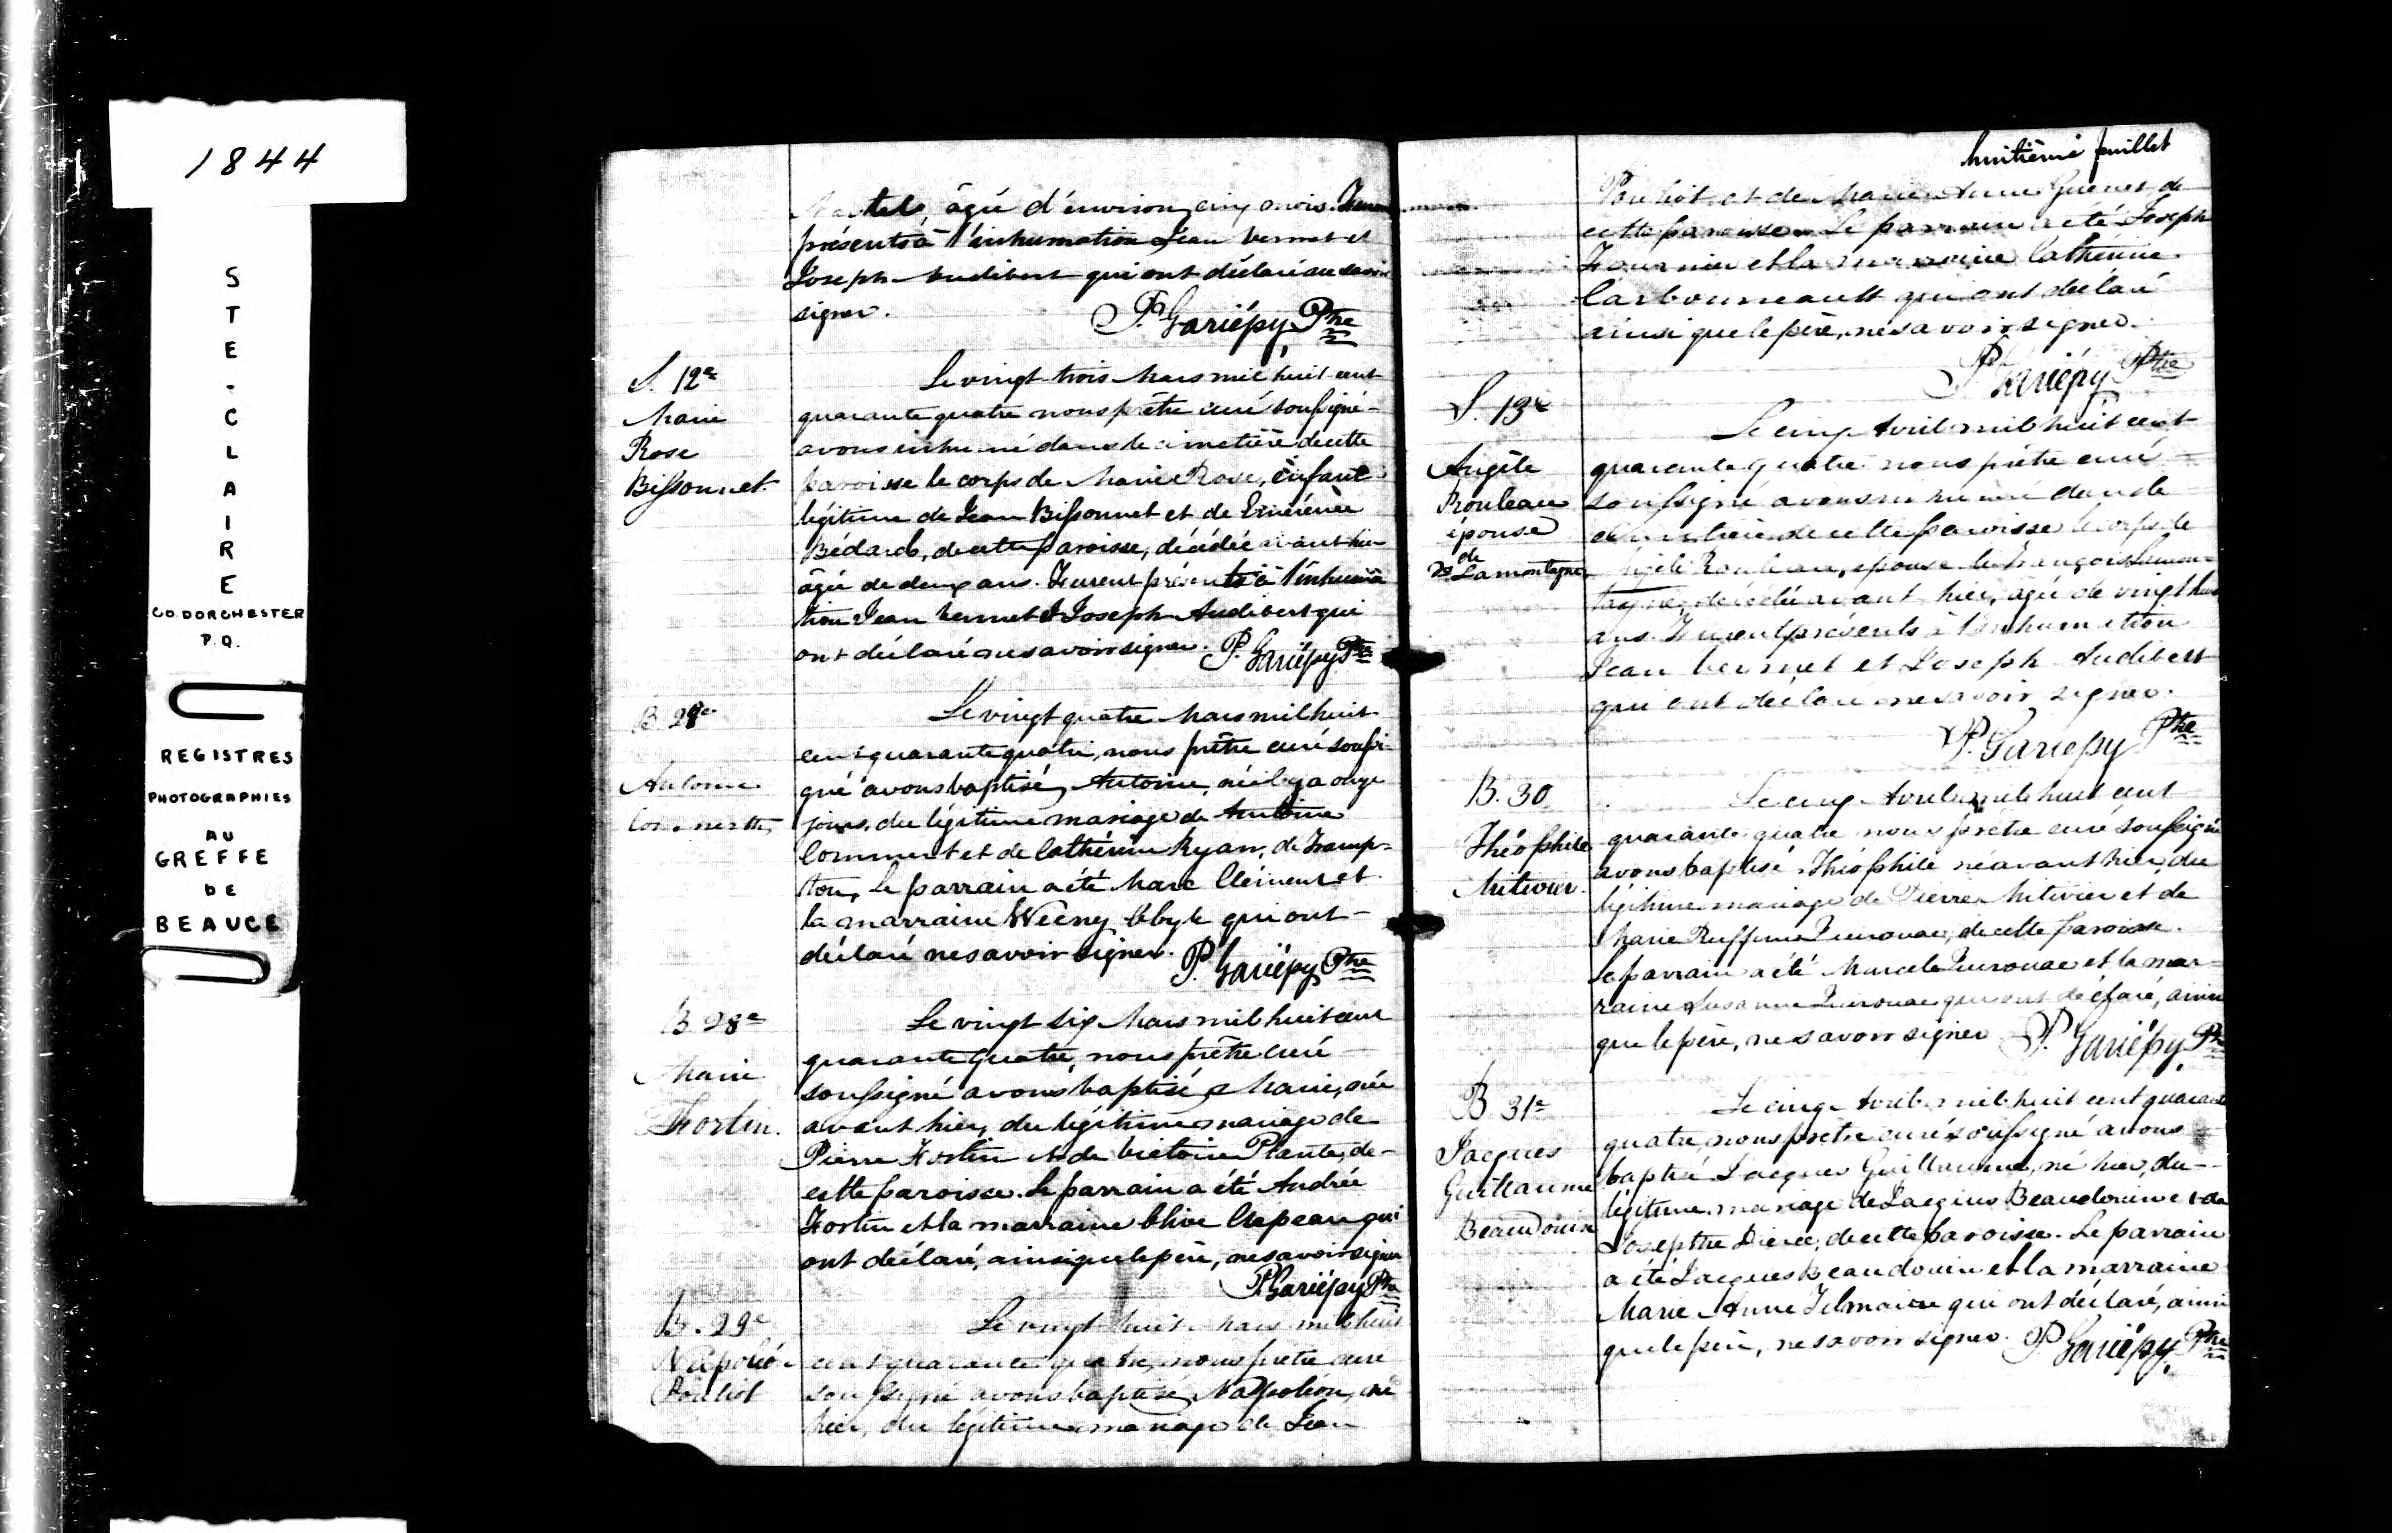 1844
STE-CLAIRE
CO. DORCHESTER
P.Q.
REGISTRES
PHOTOGRAPHIES
AU
GREFFE
DE
BEAUCE
âgé d'environ cinq mois. Furent
présents à l'inhumation Jean Vermet et
Joseph Audibert qui ont déclaré ne savoir
signer.
P. Gariépy Ptre
S. 12e
Marie
Rose
Bissonnet
Le vingt trois Mars mil huit cent
quarante quatre nous prêtre curé soussigné
avons inhumé dans le cimetière de cette
paroisse le corps de Marie Rose, enfant
légitime de Jean Bissonnet et de Emérence
Bédard, de cette paroisse, décédée avant hier
âgée de deux ans. Furent présents à l'inhuma
tion Jean Vermet & Joseph Audibert qui
ont déclaré ne savoir signer. P. Gariépy Ptre
B. 28e
Antoine
Le vingt quatre Mars mil huit
cent quarante quatre, nous prêtre curé soussi-
gné avons baptisé Antoine, né il y a onze
jours, du légitime mariage de Antoine
Comment et de Cathérine Ryan, de Framp-
ton, Le parrain a été Marc Clément et
la marraine qui ont
déclaré ne savoir signer. P. Gariépy Ptre
B. 28e
Marie
Fortin.
Le vingt six Mars mil huit cent
quarante quatre, nous prêtre curé
soussigné avons baptisé Marie, née
avant hier, du légitime mariage de
Pierre Fortin et de Victoire Plante, de
cette paroisse. Le parrain a été André
Fortin et la marraine qui
ont déclaré, ainsi que le père, ne savoir signer
P. Gariépy Ptre
B. 29e
Napoléon
Pouliot
Le vingt huit Mars mil huit
cent quarante quatre, nous prêtre curé
soussigné avons baptisé Napoléon, né
hier, du légitime mariage de Jean
huitième feuillet
Pouliot et de Marie Anne Guenet de
cette paroisse. Le parrain a été Joseph
Fournier et la marraine Cathérine
Carbonneault qui ont déclaré
ainsi que le père, ne savoir signer.
P. Gariépy Ptre
S. 13e
Angèle
Rouleau
épouse
de
Lamontagne
Le cinq Avril mil huit cent
quarante quatre nous prêtre curé
soussigné avons inhumé dans le
cimetière de cette paroisse le corps de
Angèle Rouleau, épouse de François Lamon-
tagne, décédée avant hier, âgée de vingt huit
ans. Furent présents à l'inhumation
Jean Vermet et Joseph Audibert
qui ont déclaré ne savoir signer.
P. Gariépy Ptre
B. 30
Théophile
Métivier.
Le cinq Avril mil huit cent
quarante quatre nous prêtre curé soussigné
avons baptisé Théophile né avant hier, du
légitime mariage de Pierre Métivier et de
Marie Ruffine Quirouac, de cette paroisse.
Le parrain a été Marcel Quirouac et la mar-
raine Susanne Quirouac qui ont déclaré, ainsi
que le père, ne savoir signer P. Gariépy Ptre
B 31e
Jacques
Guillaume
Beaudouin
Le cinq Avril mil huit cent quarante
quatre, nous prêtre curé soussigné avons
baptisé Jacques Guillaume, né hier, du
légitime mariage de Jacques Beaudouin et de
Josephte de cette paroisse. Le parrain
a été Jacques Beaudouin et la marraine
Marie Anne qui ont déclaré, ainsi
que le père, ne savoir signer. P Gariépy Ptre